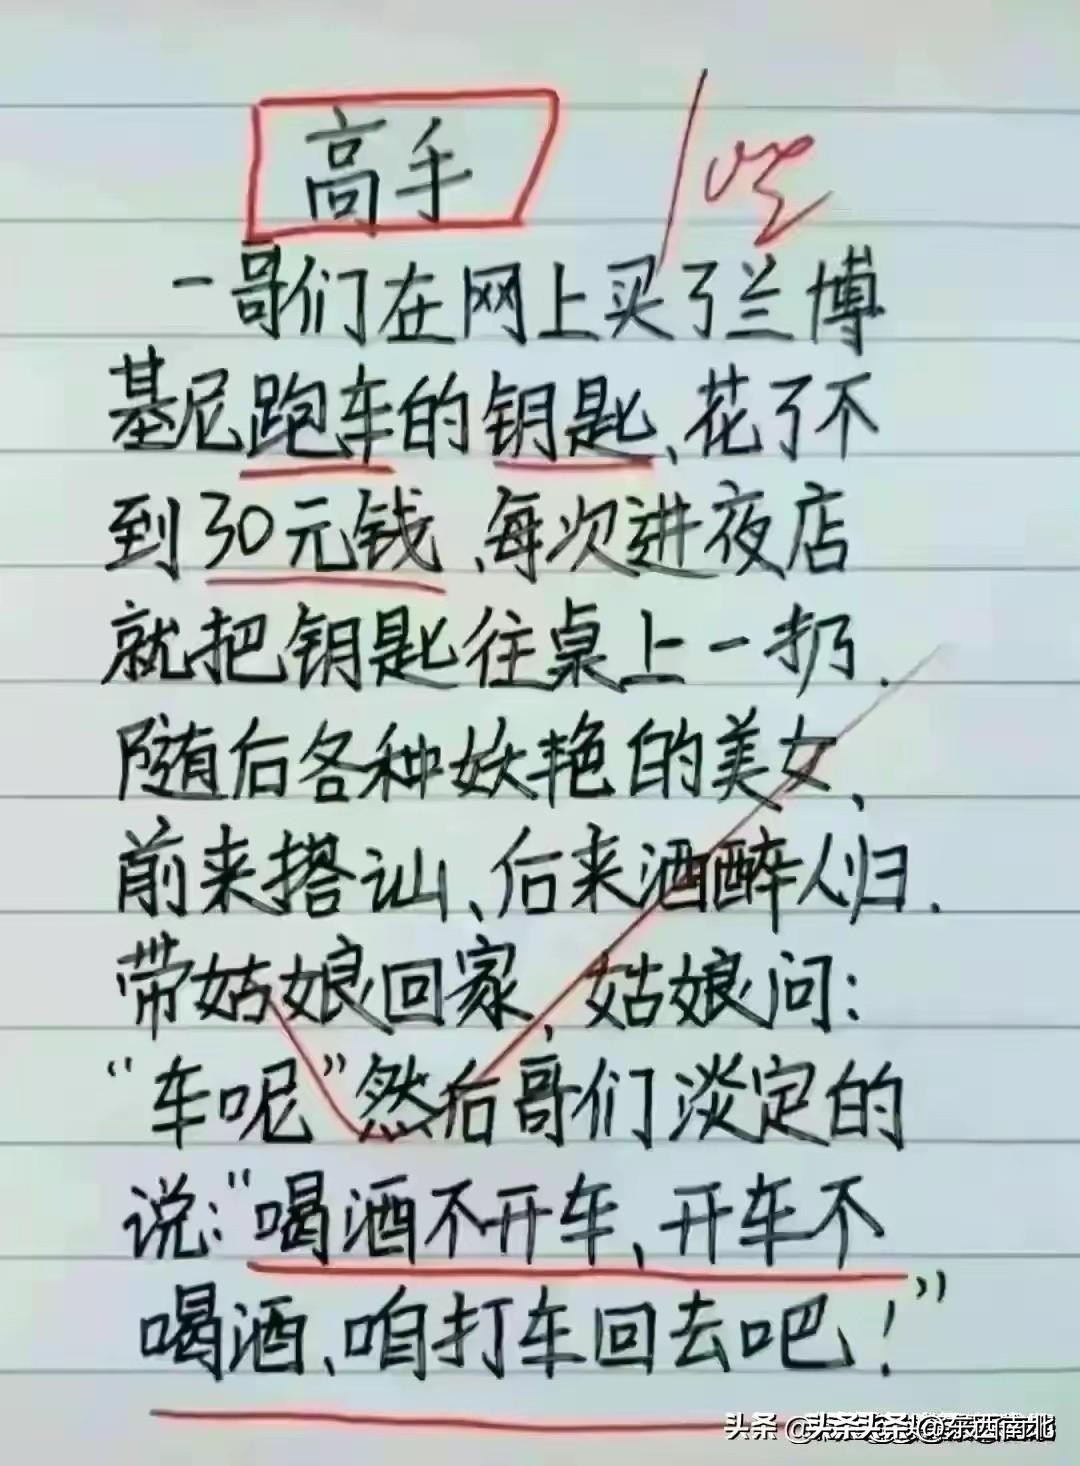 高手
一哥们在网上买了兰博
基尼跑车的钥匙、花了不
到30元钱、每次进夜店
就把钥匙往桌上一扔.
随后各种妖艳的美女、
前来搭讪、后来酒醉人归.
带姑娘回家、姑娘问:
“车呢”然后哥们淡定的
说:“喝酒不开车、开车不
喝酒、咱打车回去吧!”
头条 @东西南北